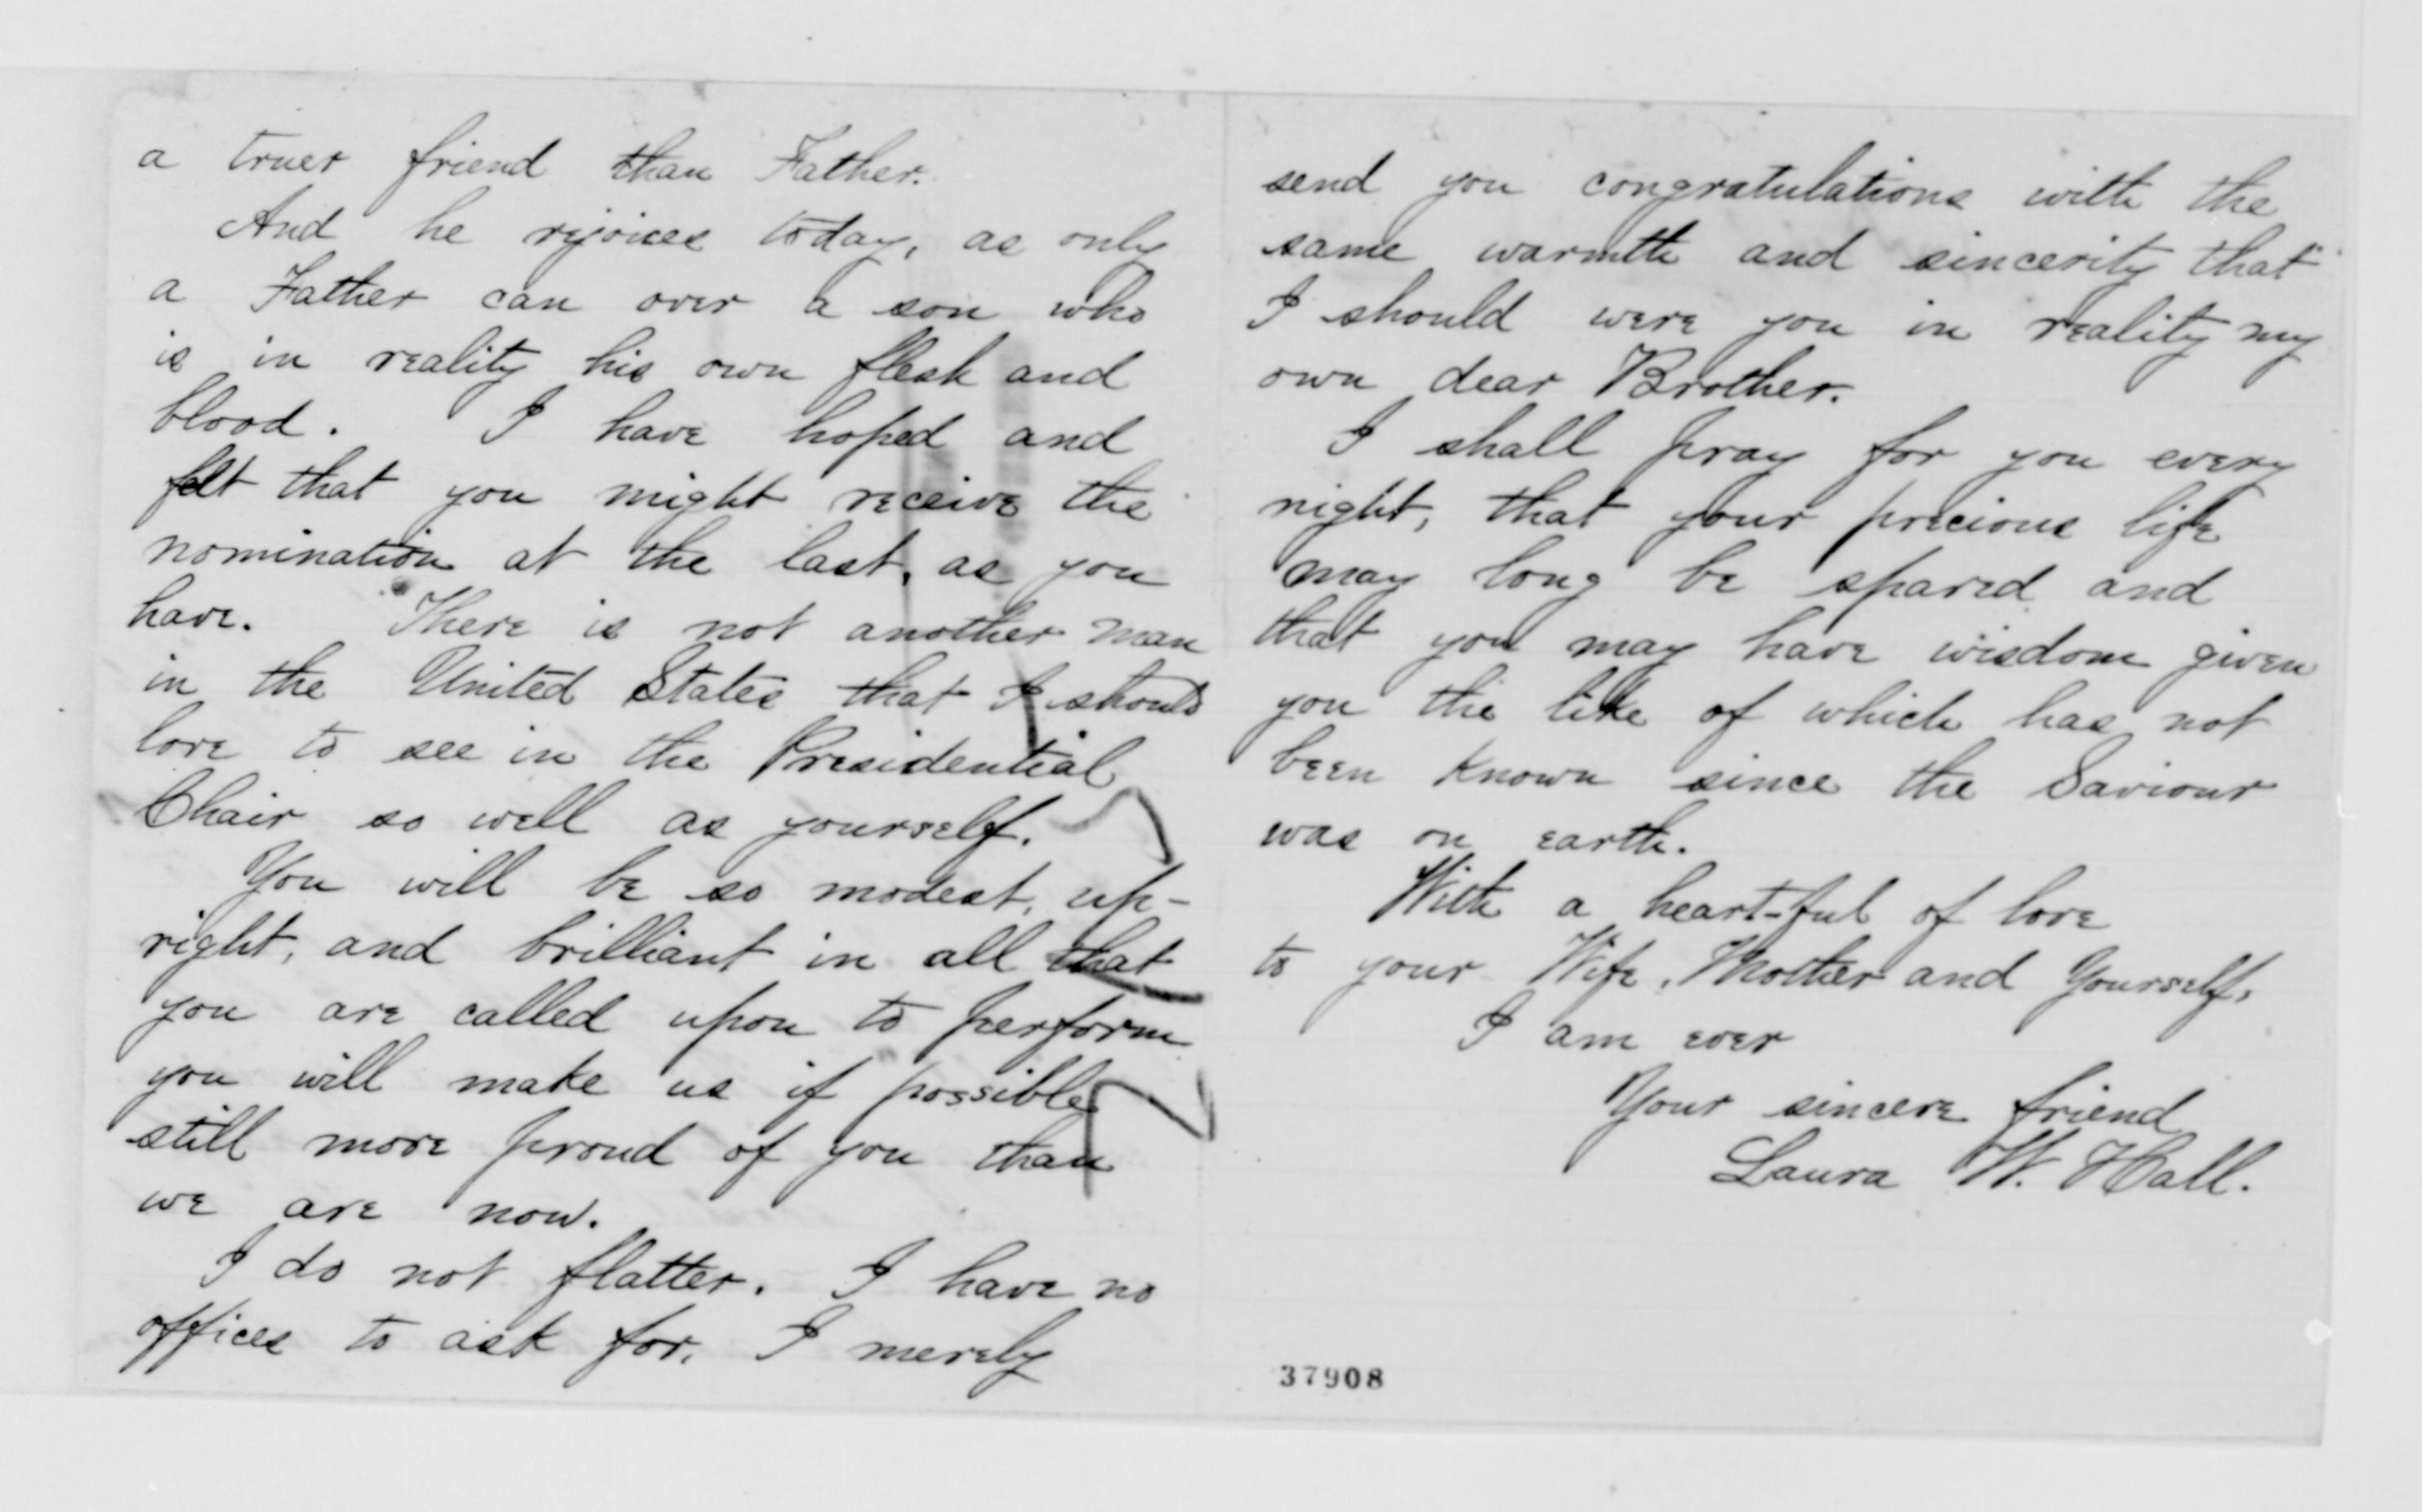 a truer friend than Father.
And he rejoices today, as only
a Father can over a son who
is in reality his own flesh and
blood. I have hoped and
felt that you might receive the
nomination at the last, as you
have. There is not another man
in the United States that I should
love to see in the Presidential
Chair so well as yourself.
You will be so modest, up-
right, and brilliant in all that
you are called upon to perform
you will make us if possible
still more proud of you than
we are now.
I do not flatter. I have no
offices to ask for. I merely
send you congratulations with the
same warmth and sincerity that
I should were you in reality my
own dear Brother.
I shall pray for you every
night, that your precious life
may long be spared and
that you may have wisdom given
you the like of which has not
been known since the Saviour
was on earth.
With a heart-ful of love
to your Wife, Mother and Yourself,
I am ever
Your sincere friend
Laura W. Hall.
37908